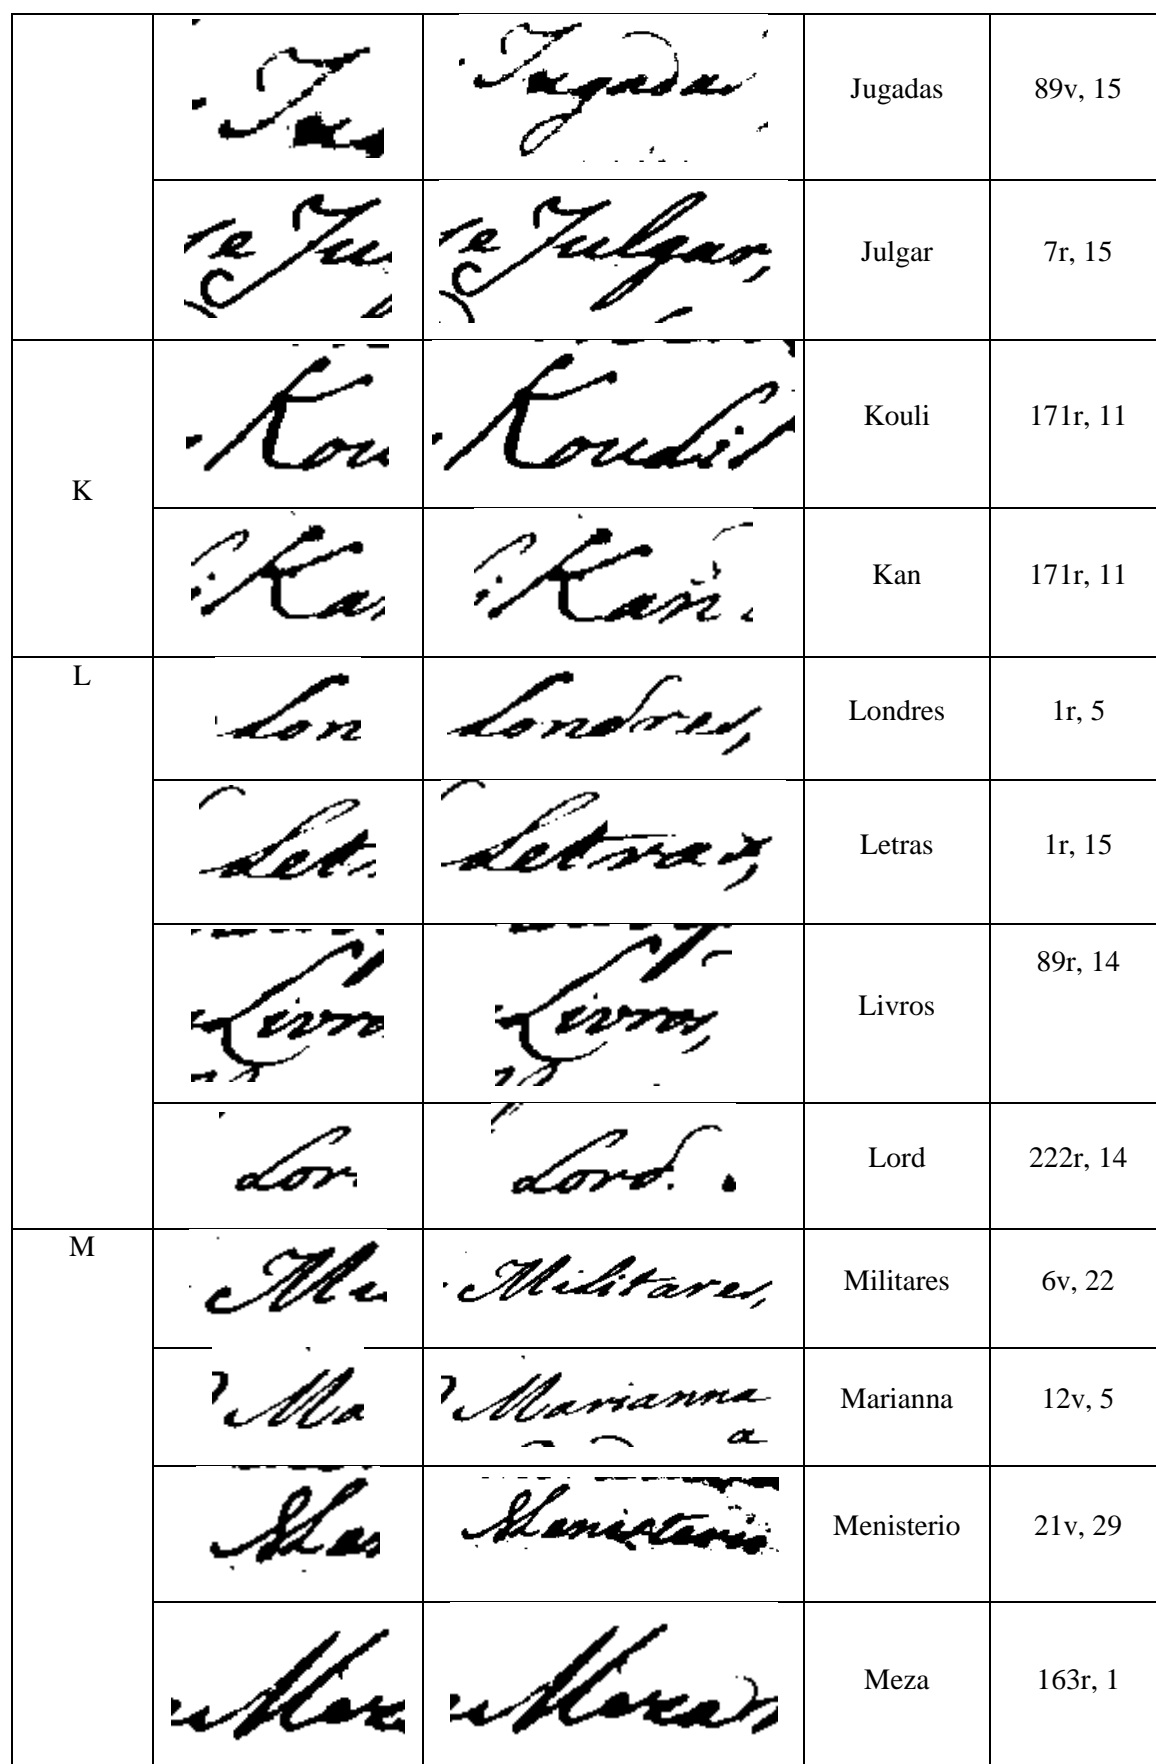 Ju Jugadas Jugadas 89v, 15
re Ju re Julgar, Julgar 7r, 15
K
Kou Kouli Kouli 171r, 11
Ka Kan Kan 171r, 11
L
Lon Londres, Londres 1r, 5
Let Letras, Letras 1r, 15
Livro Livros, Livros 89r, 14
Lor Lord. Lord 222r, 14
M
Mi Militares, Militares 6v, 22
Ma Marianna Marianna 12v, 5
a
Me Menisterio Menisterio 21v, 29
Mez Meza Meza 163r, 1